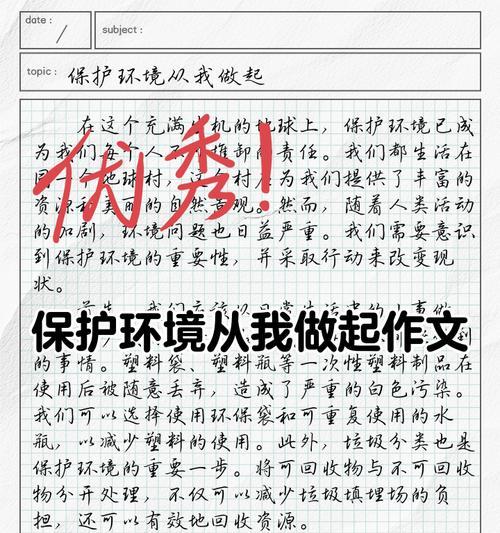 date :
subject :
topic : 保护环境从我做起
在这个充满机的地球上，保护环境已成
为我们每个人不推卸的责任。我们都生活在
同一个地球村，这个村为我们提供了丰富的
资源和美丽的自然景观。然而，随着人类活动
的加剧，环境问题也日益严重。我们需要意识
到保护环境的重要性，并采取行动来改变现
状。
优秀！
保护环境从我做起作文
的事情。塑料袋、塑料瓶等一次性塑料制品在
使用后被随意丢弃，造成了严重的白色污染。
我们可以选择使用环保袋和可重复使用的水
瓶，以减少塑料的使用。此外，垃圾分类也是
保护环境的重要一步。将可回收物与不可回收
物分开处理，不仅可以减少垃圾填埋场的负
担，还可以有效地回收资源。